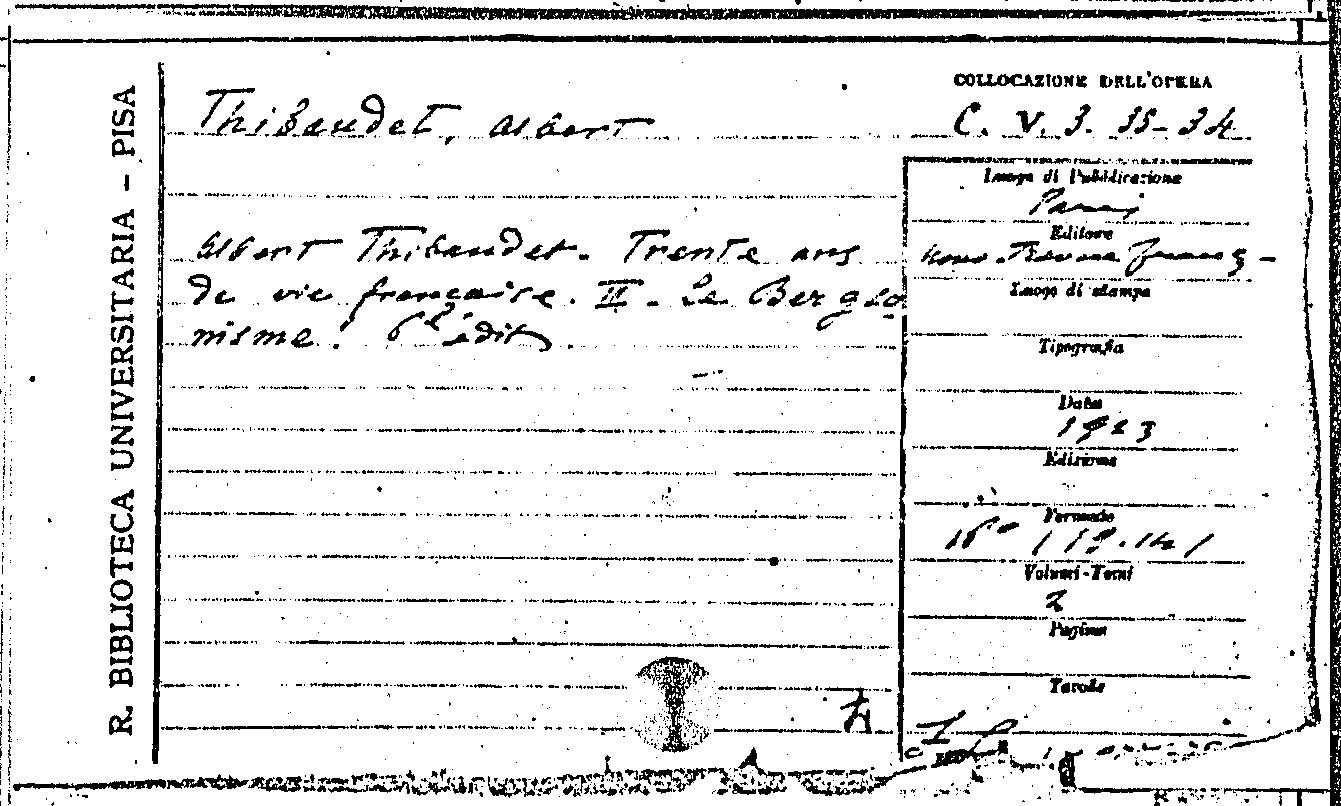 R. BIBLIOTECA UNIVERSITARIA - PISA
Thibaudet, Albert
Albert Thibaudet. Trente ans
de vie française. II - Le Bergso
nisme! 6e édit.
COLLOCAZIONE DELL'OPERA
C. V. 3. 33-34
Luogo di Pubblicazione
Paris
Editore
Nouv. Revue Franç -
Luogo di stampa
Tipografia
Data
1923
Edizione
Formato
16°
Volumi-Tomi
2
Pagine
Tavole